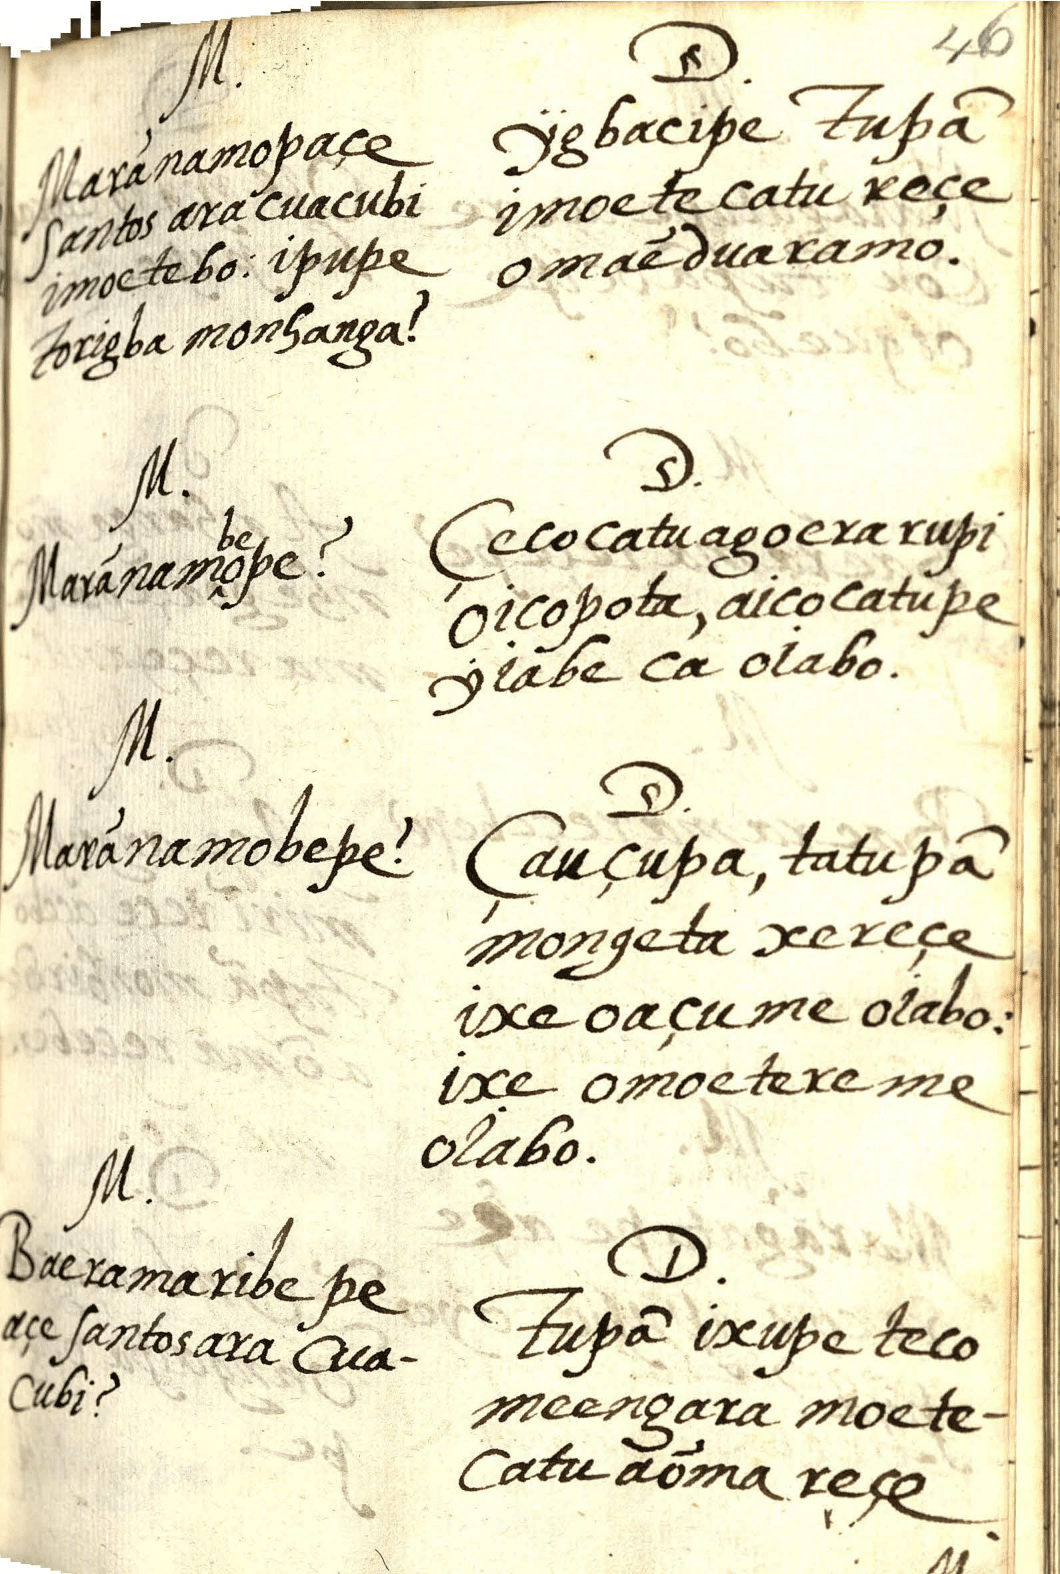 46
M.
Marãnamopaçe
santos ara cuacubi
imoetebo: ipupe
torigba monhanga?
D.
ÿgbacipe Tupã
imoetecatu reçe
omaẽduaramo.
M.
Marãnamobepe?
D.
Cecocatuagoerarupi
oicopota, aicocatupe
ÿiabe ca oiabo.
M.
Marãnamobepe?
D.
Çauçupa, tatupã
mongeta xereçe
ixe oaçume oiabo:
ixe omoetereme
oiabo.
M.
Baeramaribe pe
açe santos ara cua-
cubi?
D.
Tupã ixupe teco
meengara moete-
catu aõma reçe
M